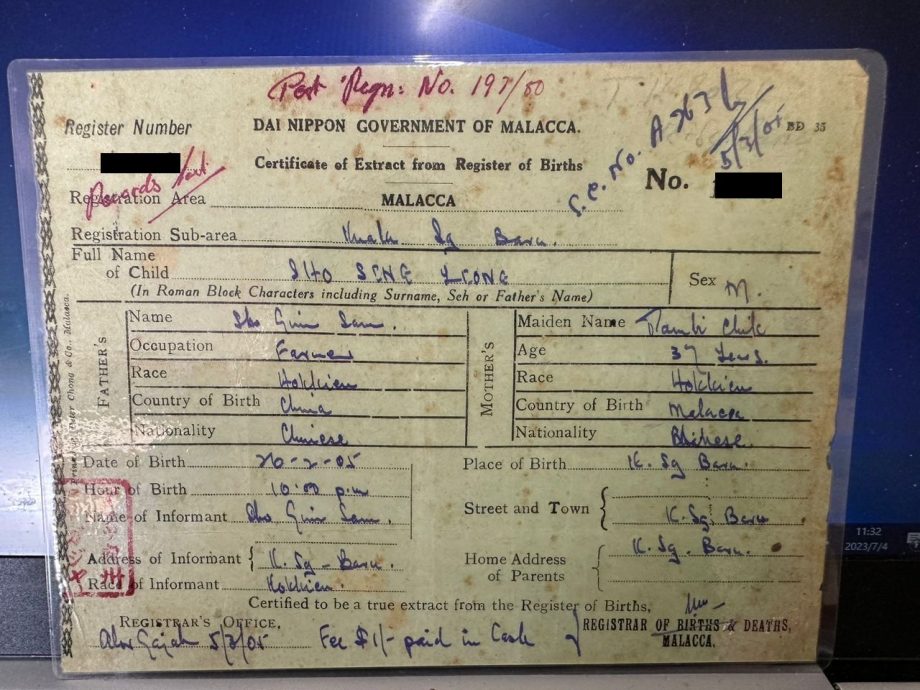 Post Regn: No. 197/00
Register Number
DAI NIPPON GOVERNMENT OF MALACCA.
BD 35
Certificate of Extract from Register of Births
S.C. No. A 2636
5/3/05
No.
Registration Area MALACCA
Registration Sub-area Kuala Sg Baru.
Full Name of Child SHO SENG LEONG
(In Roman Block Characters including Surname, Seh or Father's Name)
Sex M.
FATHER'S
Name Sho Guin Sam.
Occupation Farmer
Race Hokkien
Country of Birth China
Nationality Chinese
MOTHER'S
Maiden Name Tambi Chik
Age 37 Years.
Race Hokkien
Country of Birth Malacca
Nationality Chinese.
Date of Birth 20-2-05
Place of Birth K. Sg Baru.
Hour of Birth 10.00 p.m
Name of Informant Sho Guin Sam.
Street and Town K. Sg. Baru
Address of Informant K. Sg - Baru.
Home Address of Parents K. Sg. Baru.
Race of Informant Hokkien.
Certified to be a true extract from the Register of Births,
REGISTRAR'S OFFICE,
REGISTRAR OF BIRTHS & DEATHS,
MALACCA.
Alor Gajah 5/3/05 Fee $1/- paid in Cash
11:32
2023/7/4